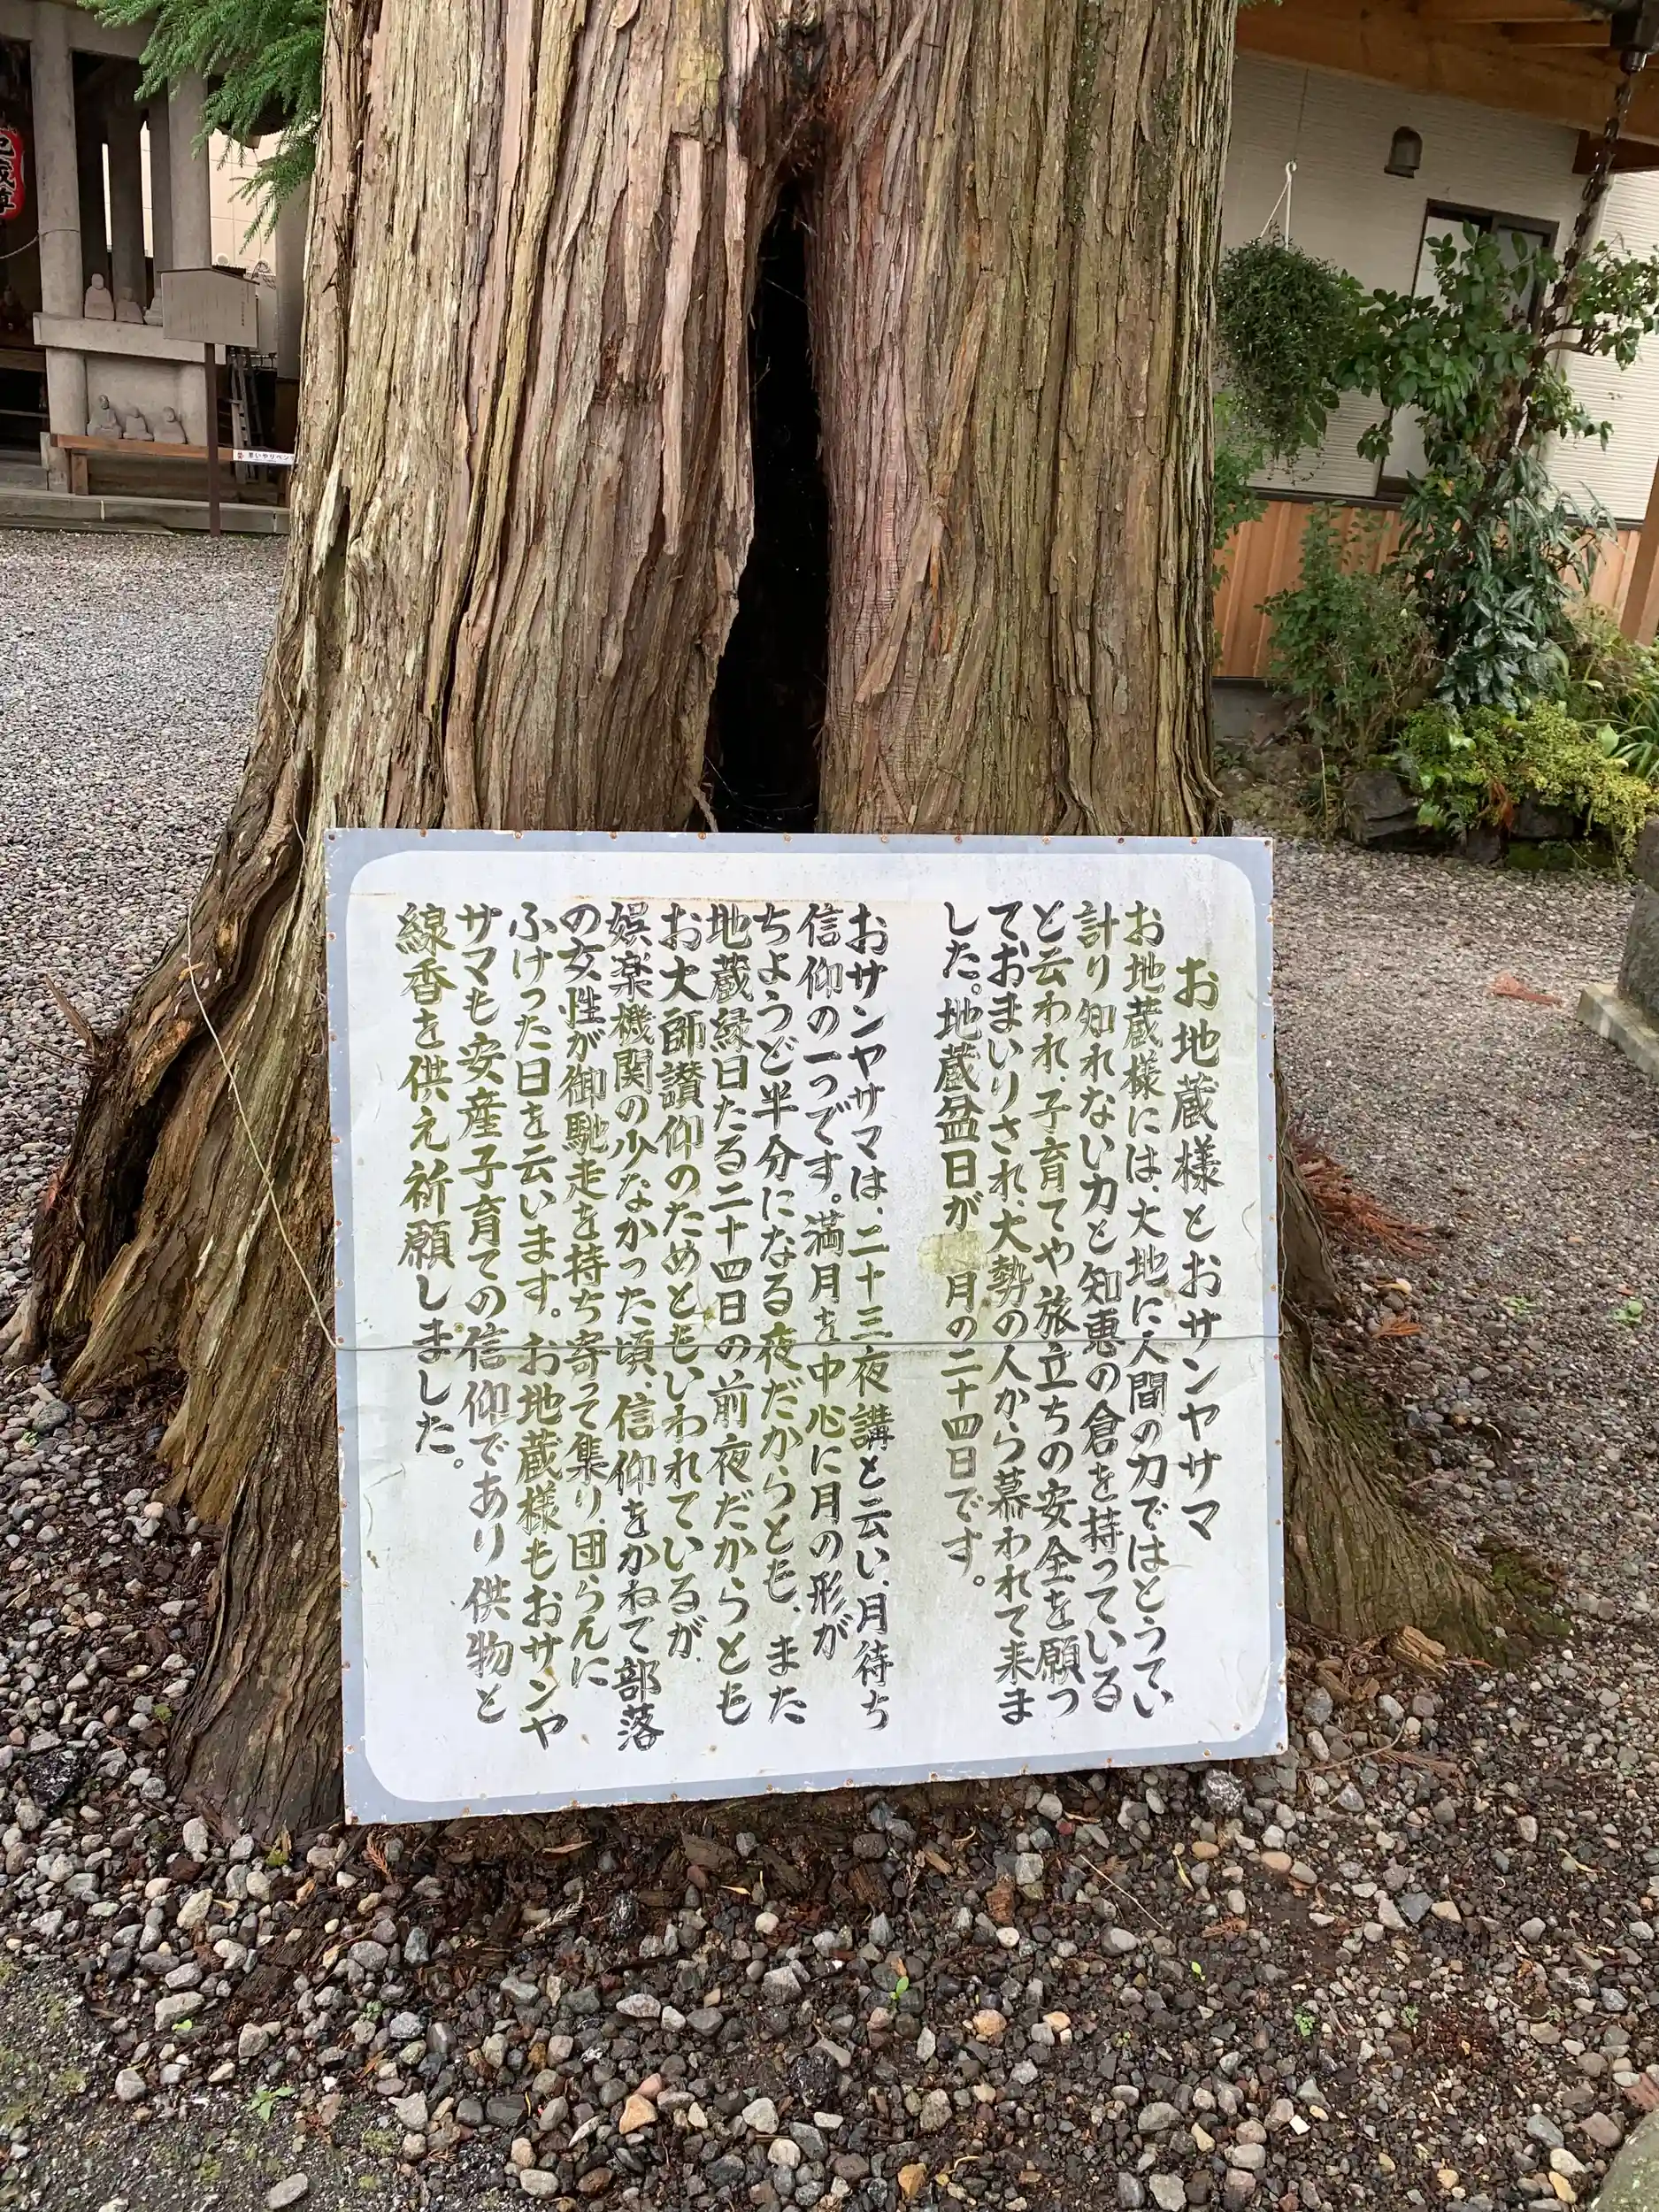 お地蔵様とおサンヤサマ
お地蔵様には、大地に人間の力ではとうてい
計り知れない力と知恵の倉を持っている
と云われ、子育てや旅立ちの安全を願っ
ておまいりされ、大勢の人から慕われて来ま
した。地蔵盆日が 月の二十四日です。
おサンヤサマは、二十三夜講と云い、月待ち
信仰の一つです。満月を中心に月の形が
ちようど半分になる夜だからとも、また
地蔵縁日たる二十四日の前夜だからとも
お大師讃仰のためともいわれているが、
娯楽機関の少なかった頃、信仰をかねて部落
の女性が御馳走を持ち寄って集り、団らんに
ふけった日を云います。お地蔵様もおサンヤ
サマも安産子育ての信仰であり供物と
線香を供え祈願しました。